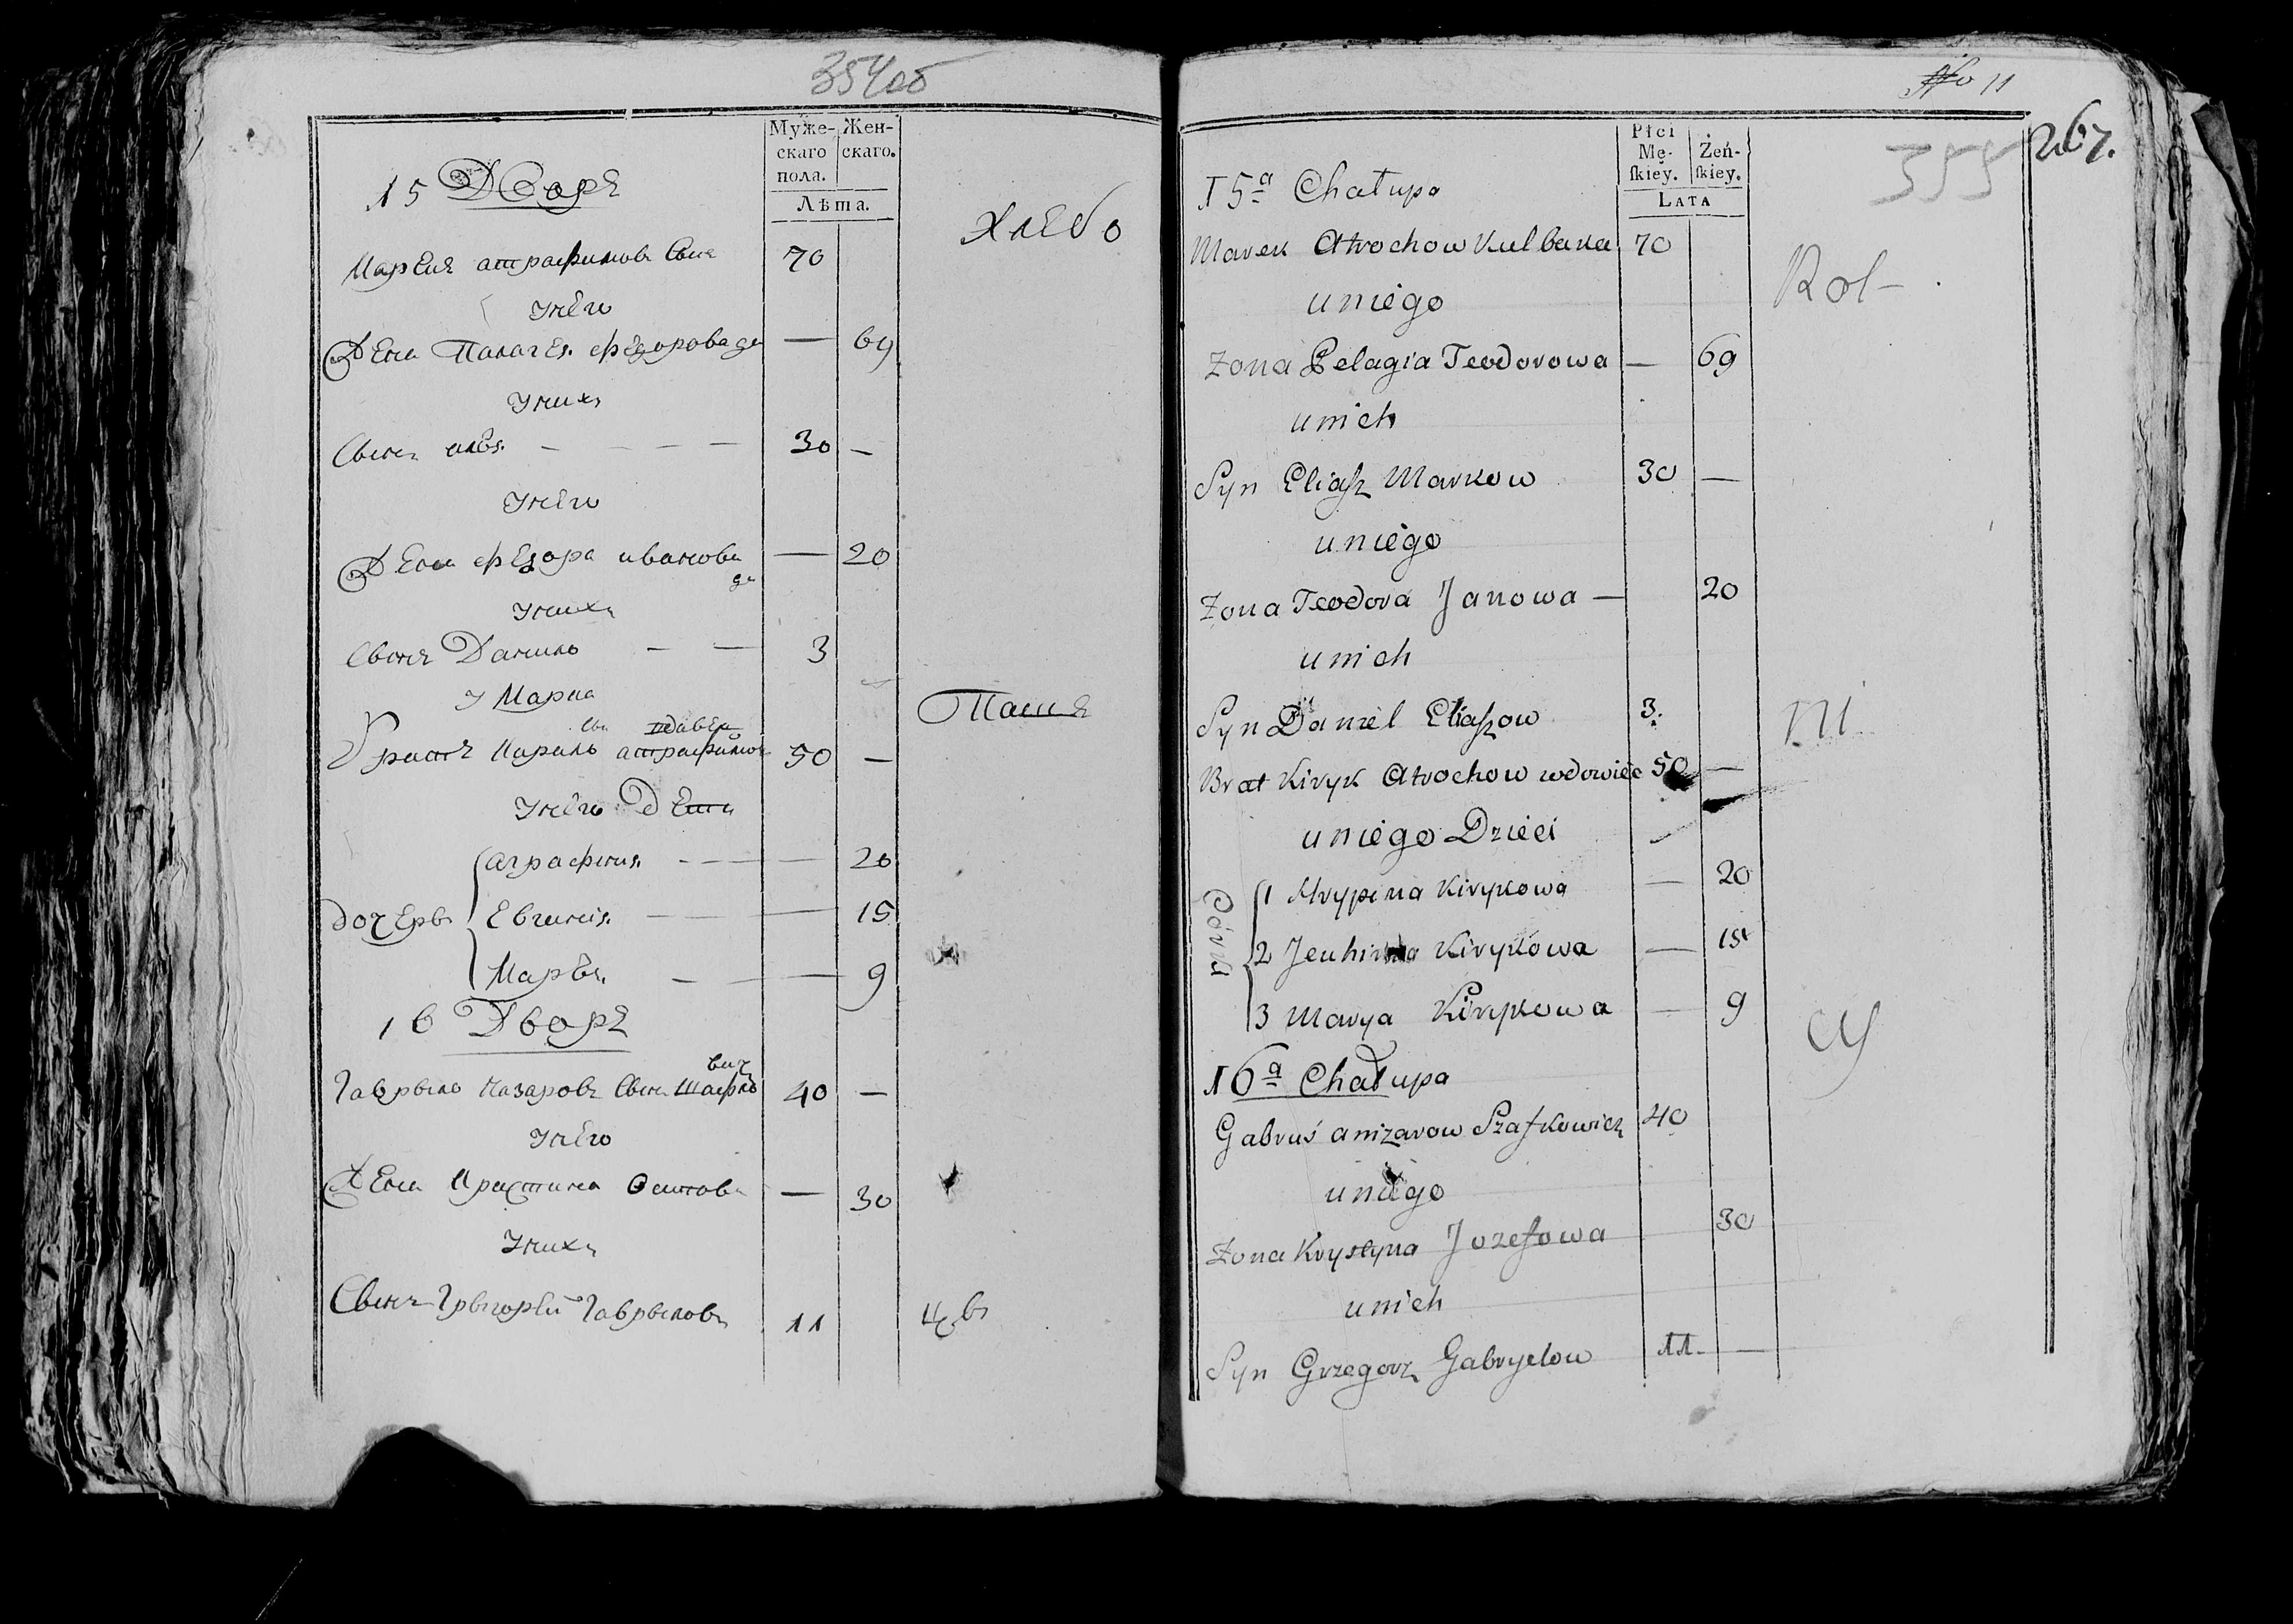 354об
Муже-скаго пола. Жен-скаго.
Лѣта.
15 Дворъ
Хлебо
70
Унего
Жена Палагея Федорова до 69
Унихъ
Сынъ илья — — — — 30 —
Унего
Жена Федора иванова до — 20
Унихъ
Сынъ Данило — — 3
У Марка
Пашц
Братъ Кирило 50 —
Унего Дети
Аграфиня — — — — 20
дочери Евгиния — — — 15
Марья — — — 9
16 Дворъ
вич
Гаврыло Назаровъ Сынъ Шафко 40 —
Унего
Жена Кристина Осипова — 30
Унихъ
Сынъ Грыгорей Гаврылов 11
цы
No 11
267.
355
Płci Mę-ſkiey. Żeń-ſkiey.
LATA
15a Chałupa
Marek Atrochow Kulbaka 70
Rol-
uniego
Zona Pelagia Teodorowa — 69
unich
Syn Eliaſz Markow 30 —
uniego
Zona Teodora Janowa — 20
unich
Syn Daniel Eliaſzow 3.
ni
Brat Kiryk Atrochow wdowiec 50 —
uniego Dzieci
Córki
1 Hrypina Kirykowa — 20
2 Jeuhinia Kirykowa — 15
3 Marya Kirykowa — 9
cy
16a Chałupa
Gabruś anizarow Szafkowicz 40
uniego
Zona Krystyna Jozefowa 30
unich
Syn Grzegorz Gabryelow 11. —